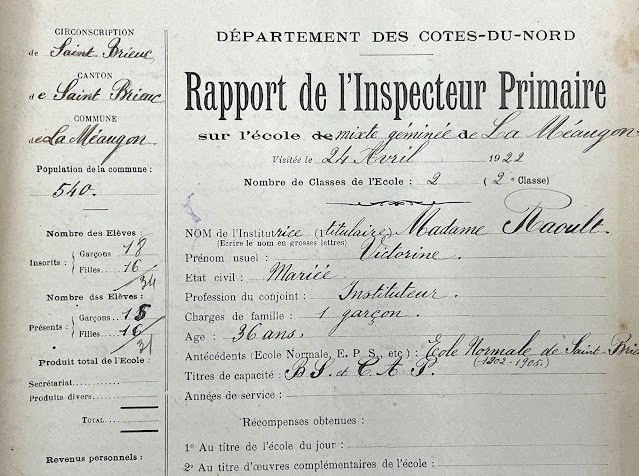 CIRCONSCRIPTION
de Saint-Brieuc
CANTON
de Saint Brieuc
COMMUNE
de La Méaugon.
Population de la commune :
540.
Nombre des Elèves:
Inscrits : Garçons 18
Filles..... 16
34
Nombre dss Elèves:
Présents : Garçons.. 15
Filles..... 16
31
Produit total de l'Ecole :
Secrétariat
Produits divers
TOTAL
Revenus personnels :
DÉPARTEMENT DES COTES-DU-NORD
Rapport de l'Inspecteur Primaire
sur l'école de mixte géminée de La Méaugon
Visitée le 24 Avril 1922
Nombre de Classes de l'Ecole : 2 ( 2e Classe)
NOM de l'Institutrice (titulaire) Madame Raoult.
(Ecrire le nom en grosses lettres)
Prénom usuel : Victorine
Etat civil : Mariée
Profession du conjoint : Instituteur.
Charges de famille : 1 garçon.
Age : 36 ans.
Antécédents (Ecole Normale, E. P. S., etc) : Ecole Normale de Saint-Brieuc
(1902-1905.)
Titres de capacité : B S. et C. A P.
Années de service :
Récompenses obtenues :
1o Au titre de l'école du jour :
2o Au titre d'œuvres complémentaires de l'école :